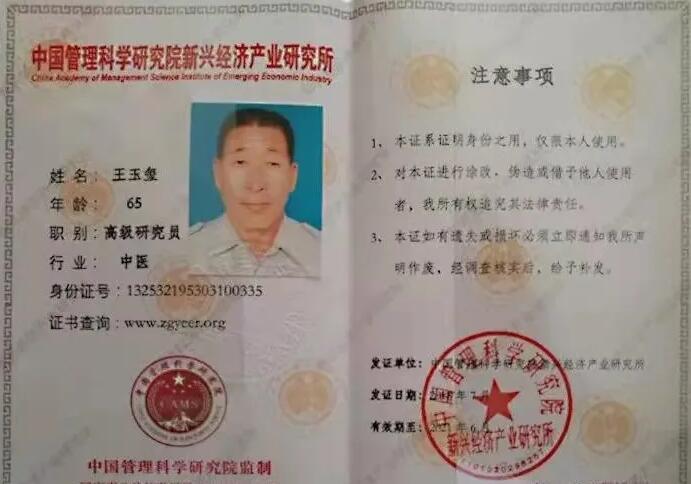 中国管理科学研究院新兴经济产业研究所
China Academy of Management Science Institute of Emerging Economic Industry
姓名：王玉玺
年龄：65
职别：高级研究员
行业：中医
身份证号：132532195303100335
证书查询：www.zgycer.org
中国管理科学研究院
CAMS
中国管理科学研究院监制
注意事项
1、本证系证明身份之用，仅限本人使用。
2、对本证进行涂改，伪造或借予他人使用
者，我所有权追究其法律责任。
3、本证如有遗失或损坏必须立即通知我所声
明作废，经调查核实后，给予补发。
发证单位：中国管理科学研究院新兴经济产业研究所
发证日期：年7月
有效期至：年6月
中国管理科学研究院
新兴经济产业研究所